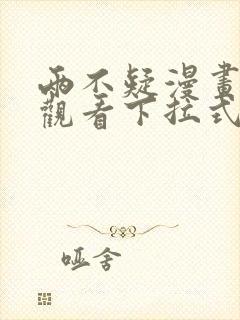 兩不疑漫畫
觀看下拉式
哑舍